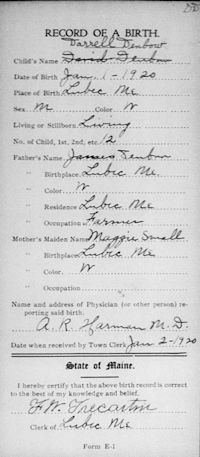 RECORD OF A BIRTH.
Darrell Denbow
Child's Name David Denbow
Date of Birth Jan. 1 - 1920
Place of Birth Lubec Me.
Sex M Color W
Living or Stillborn Living
No. of Child, 1st, 2nd, etc. 12
Father's Name James Denbow
" Birthplace Lubec Me.
" Color W
" Residence Lubec Me
" Occupation Farmer
Mother's Maiden Name Maggie Small
" Birthplace Lubec Me
" Color. W
" Occupation
Name and address of Physician (or other person) re-
porting said birth.
A. R. Harman M. D.
Date when received by Town Clerk Jan 2-1920
State of Maine.
I hereby certify that the above birth record is correct
to the best of my knowledge and belief.
F. W. Trecartin
Clerk of Lubec Me
Form E-1